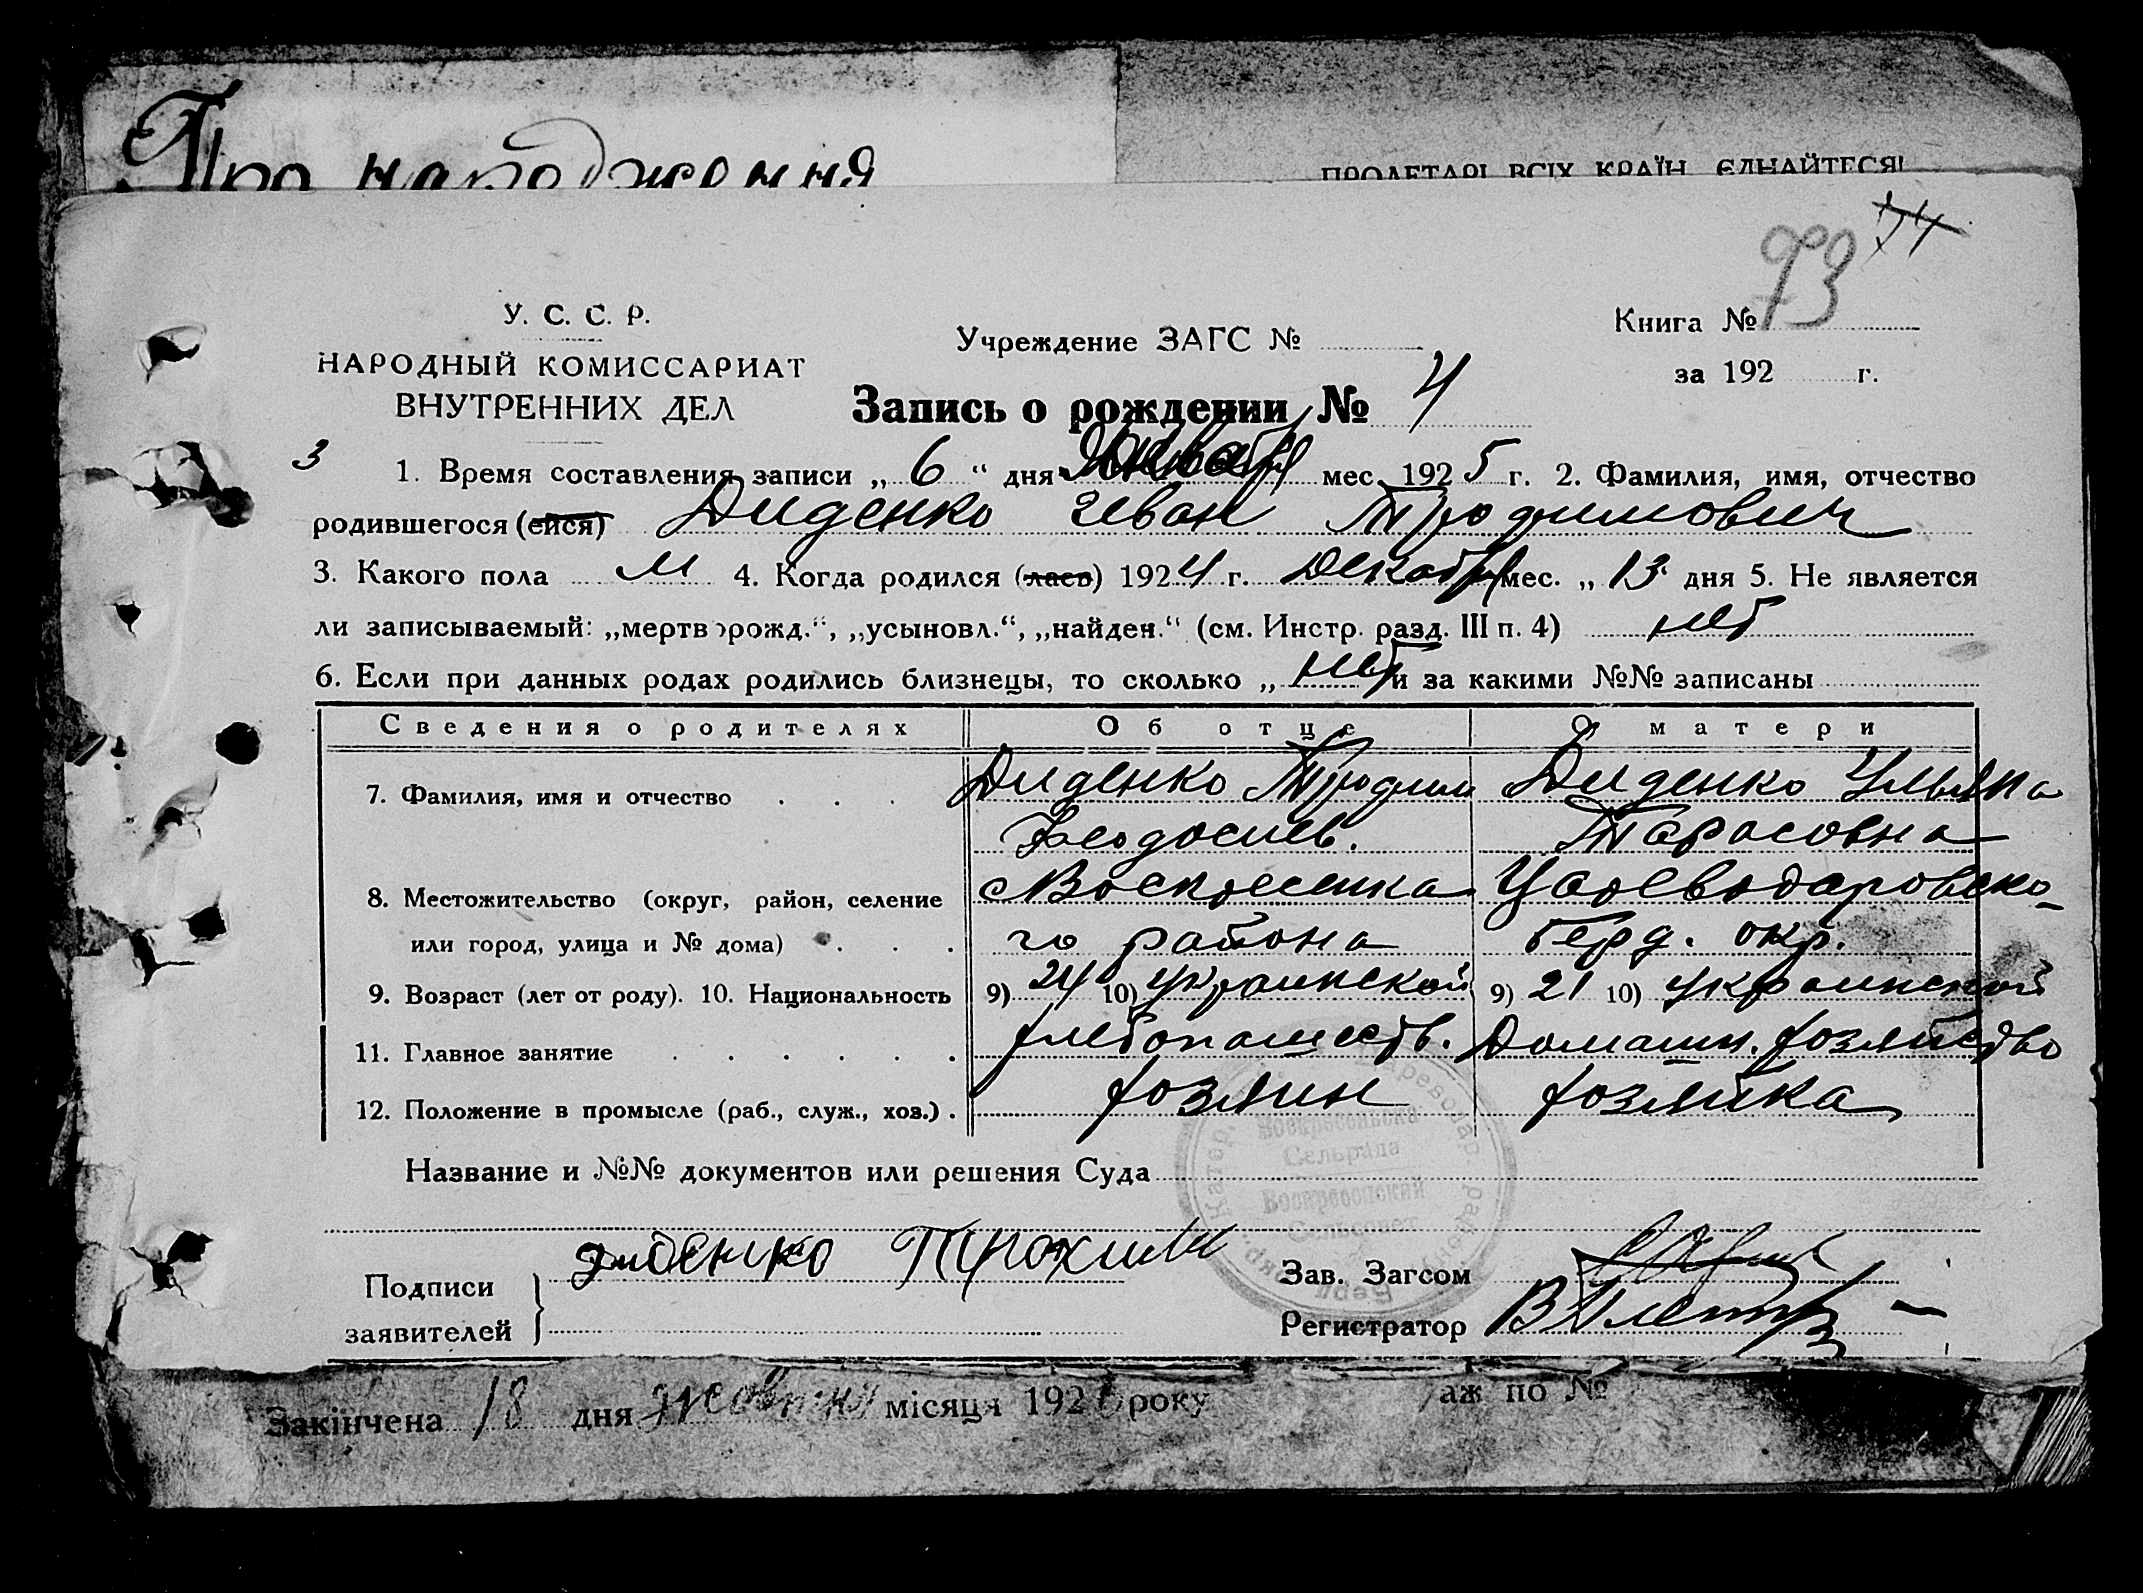 Про народження
ПРОЛЕТАРІ ВСІХ КРАЇН, ЄДНАЙТЕСЯ!
74
73
У. С. С. Р.
НАРОДНЫЙ КОМИССАРИАТ
ВНУТРЕННИХ ДЕЛ
Учреждение ЗАГС №
Книга №
за 192 г.
Запись о рождении № 4
3
1. Время составления записи „ 6 “ дня Января мес. 1925 г. 2. Фамилия, имя, отчество
родившегося (ейся) Диденко Иван Трофимович
3. Какого пола м 4. Когда родился (лась) 1924 г. Декабря мес. „ 13 дня 5. Не является
ли записываемый: „мертворожд.“, „усыновл.“, „найден.“ (см. Инстр. разд. III п. 4) нет
6. Если при данных родах родились близнецы, то сколько „ нет и за какими №№ записаны
Сведения о родителях Об отце О матери
7. Фамилия, имя и отчество . . . Диденко Трофим Диденко Ульяна
Феодосиев. Тарасовна
8. Местожительство (округ, район, селение с Воскресенка Цареводаровско-
или город, улица и № дома) . . . го района Берд. окр.
9. Возраст (лет от роду). 10. Национальность 9) 24 10) украинской 9) 21 10) украинской
11. Главное занятие . . . . . . хлебопашеств. Домашн. хозяйство
12. Положение в промысле (раб., служ., хоз.) . хозяин хозяйка
Название и №№ документов или решения Суда
Воскресенська
Сельрада
Воскресенский
Сельсовет
Подписи
заявителей
Диденко Трохим
Зав. Загсом
Регистратор
Закінчена 18 дня жовтня місяця 1926 року
аж по №